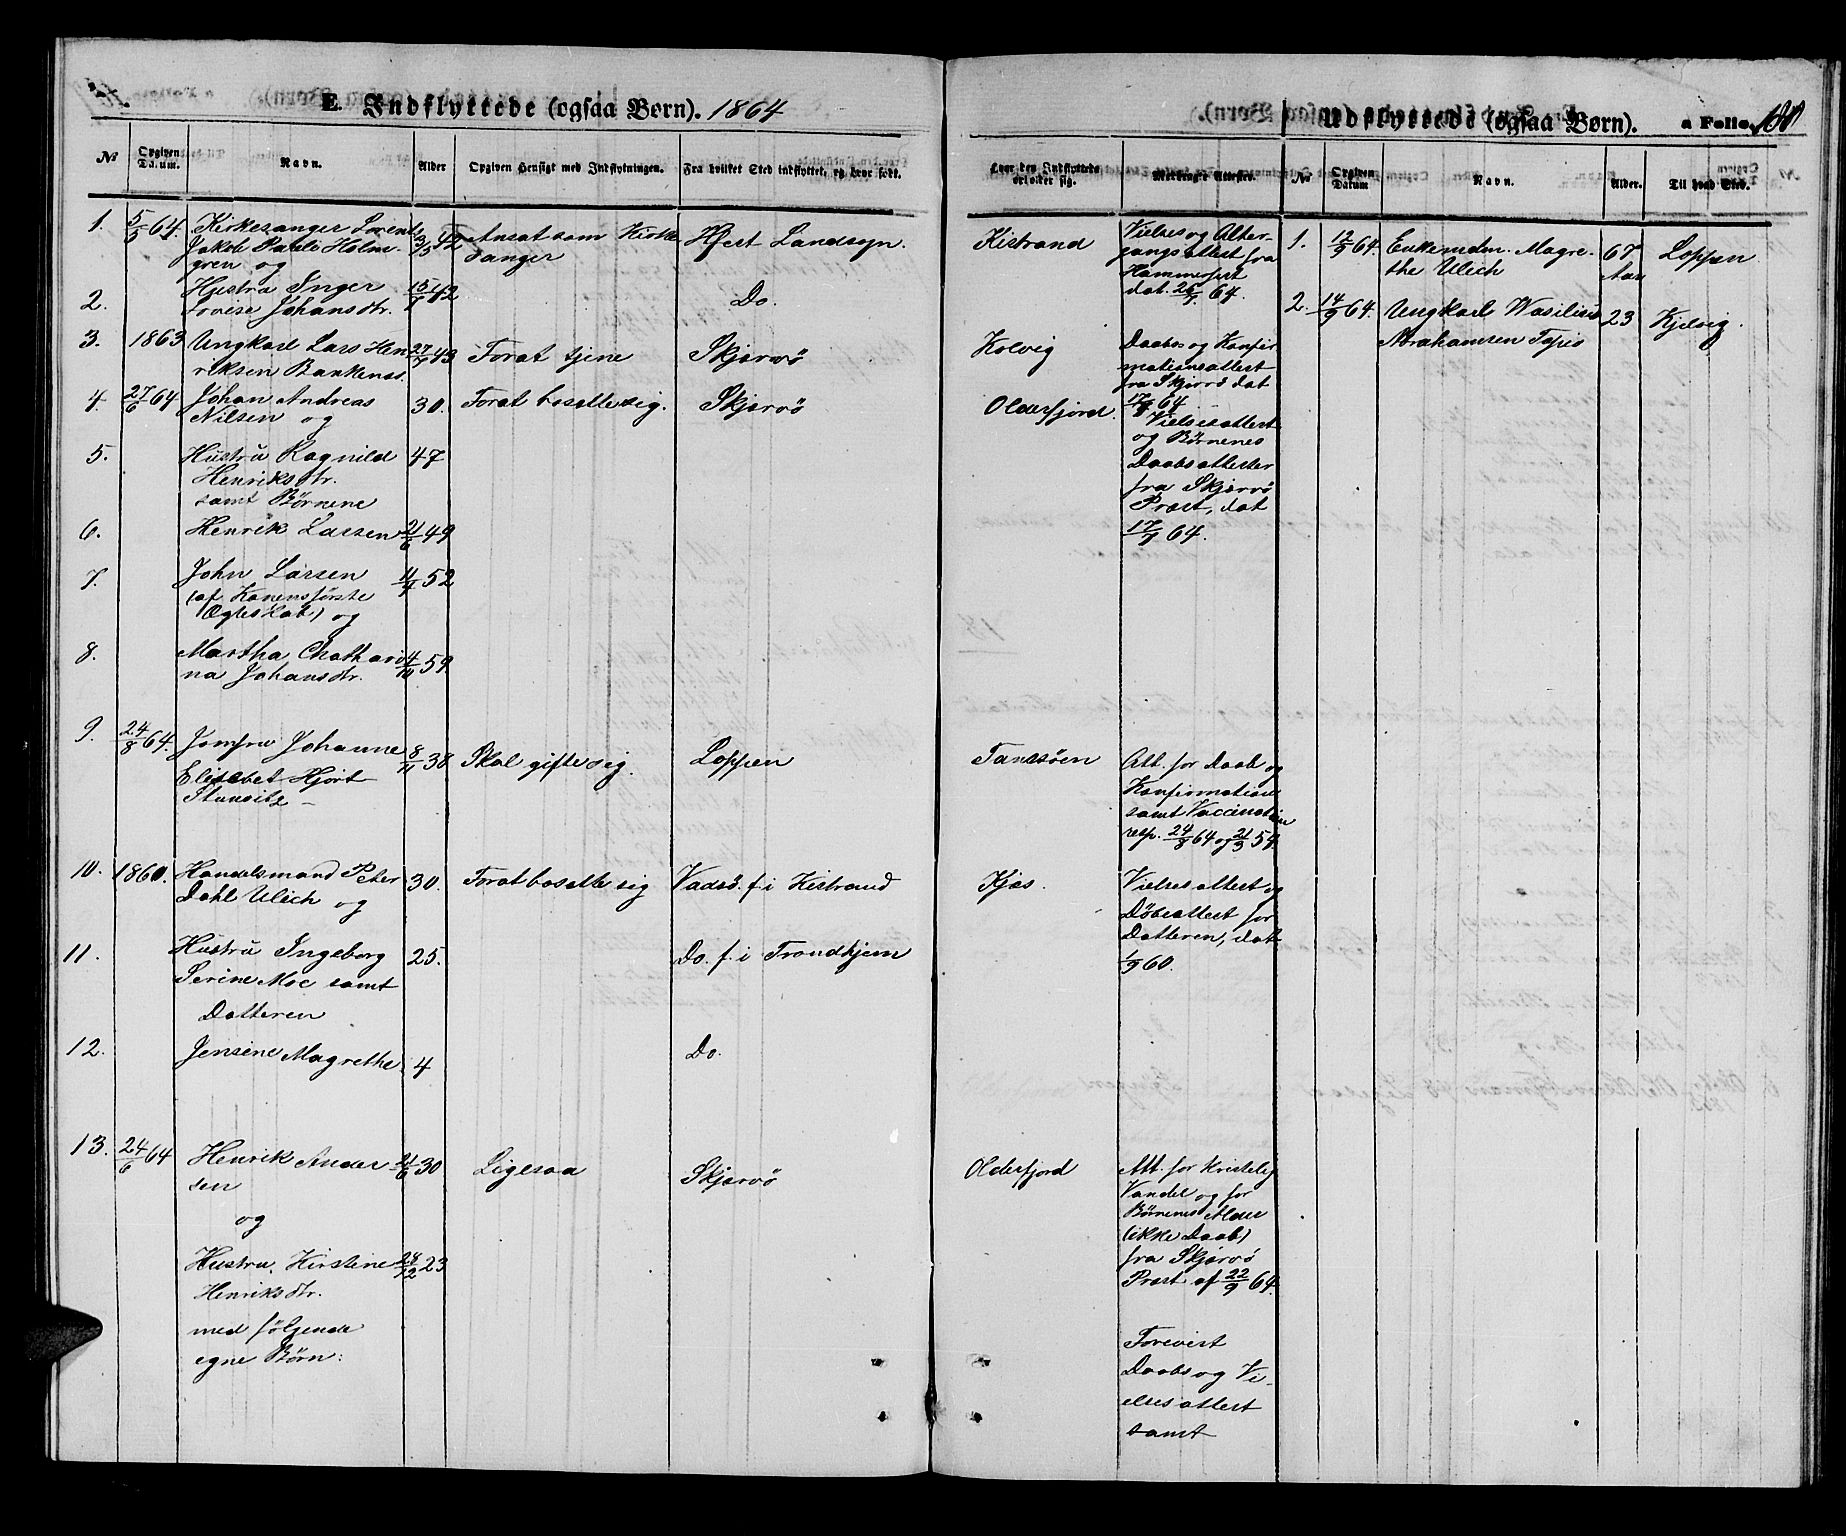 E. Indflyttede (ogsaa Børn). 1864
№ Opgiven Datum. Navn. Alder Opgiven Hensigt med Indflytningen. Fra hvilket Sted indflyttet, og hvor født. Hvor den Indflyttede opholder sig.
1. 5/5 64. Kirkesanger Lorents 42 Ansat som Kirke Hfest Landsogn. Kistrand
Jakob Pauli Holm- sanger
gren og
2. Hustru Inger 15/1 42 Do.
Lovise Johansdtr.
Vielses og Alter-
gangsattest fra
Hammerfest
dat. 64.
3. 1863 Ungkarl Lars Hen 43 For at tjene Skjervö Kolvig
riksen
Daabs og Konfir
mationsattest
fra Skjervö dat
64
4. 27/6 64 Johan Andreas 30. For at bosætte sig. Skjervö Olderfjord.
Nilsen og
5. Hustru Ragnild 47
Henriksdtr.
samt Børnene
6. Henrik Larsen 21/6 49
7. John Larsen 52
(af Konens første
Ægteskab) og
8. Martha Chathari 59
na Johansdtr.
Vielsesattest
og Børnenes
Daabsattester
fra Skjervö
Præst, dat
64.
9. 24/8 64. Jomfru Johanne 8/11 38 Skal gifte sig. Loppen
Elisebet Hjort
Att. for Daab og
Konfirmation
samt Vaccination
resp. 24/8 64 og 21/3 54
10. 1860. Handelsmand Peter 30. For at bosætte sig Vadsö. f. i Kistrand Kjæs.
Dahl Ulich og
11. Hustru Ingeborg 25. Do. f. i Trondhjem
Serine Moe samt
Datteren
12. Jensine Magrethe 4 Do.
Vielsesattest og
Døbeattest for
Datteren, dat
1/9 60.
13. 24/6 64 Henrik Ander 30 Ligesaa Skjervö Olderfjord
sen
og
Hustru Kirstine 28/12 23
Henriksdtr.
med følgende
egne Børn:
Att. for Kristelig
Vandel og for
Børnenes Alder
(ikke Daab)
fra Skjervö
Præst af 22/9 64.
Forevist
Daabs og Vi-
elsesattest
samt
Udflyttede (ogsaa Børn). a Folio.
№ Opgiven Datum Navn. Alder. Til hvad Sted.
1. 12/9 64. Enkemden. Magre- 67 Loppen
the Ulich Aar
2. 14/9 64. Ungkarl Wasilius 23 Kjelvig.
Abrahamsen